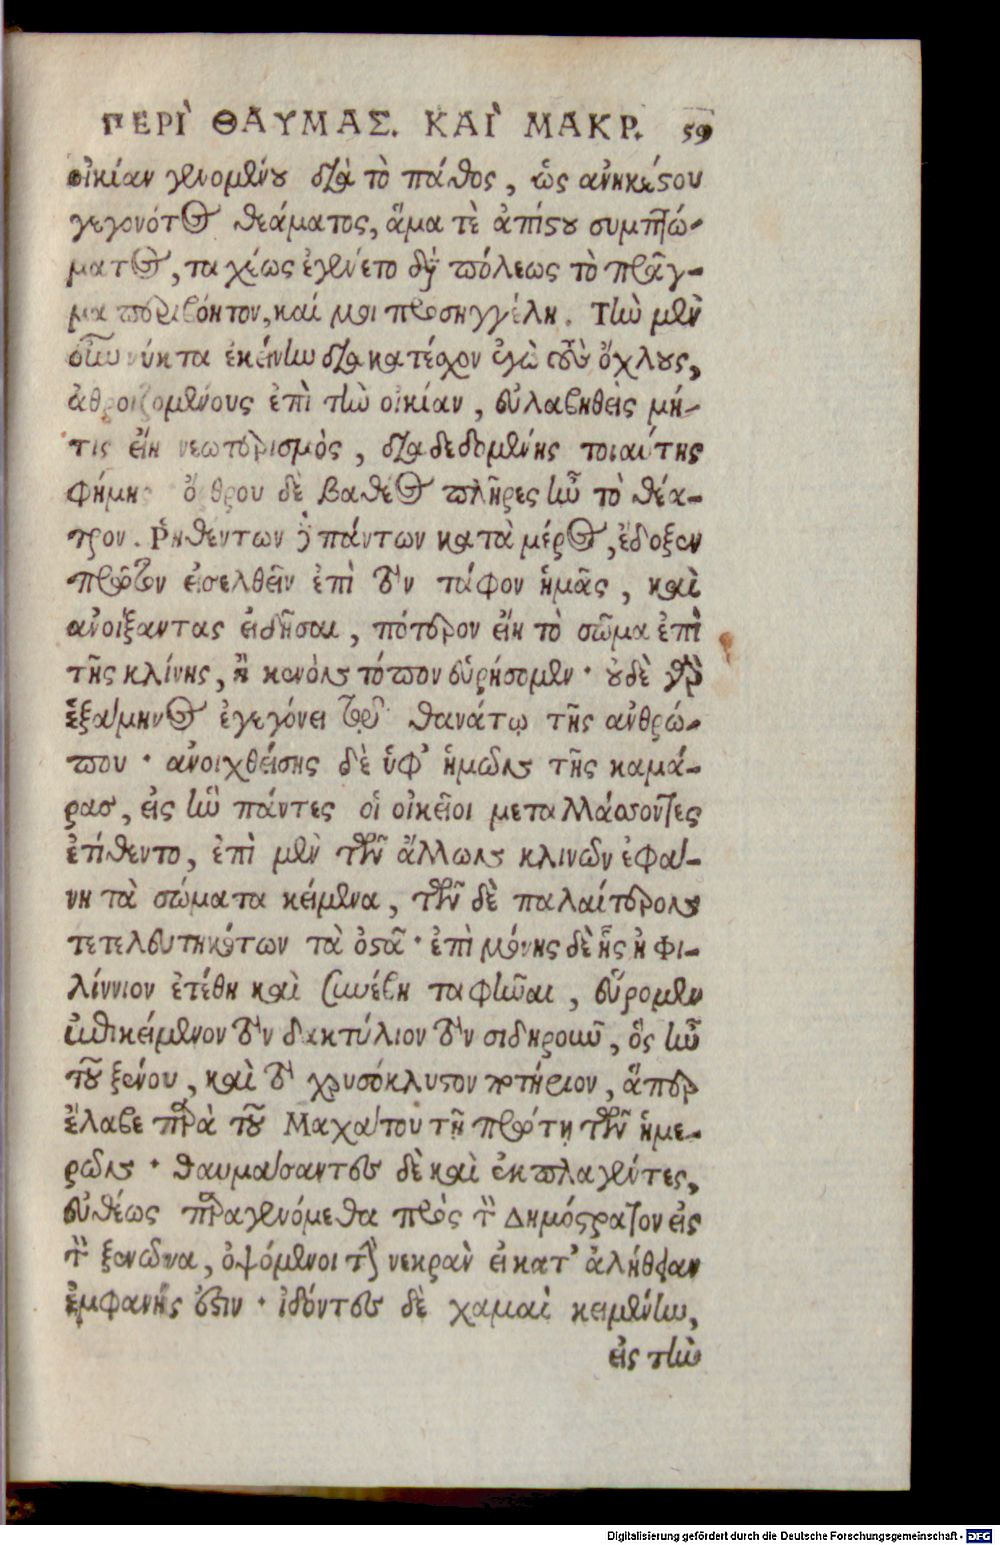 ΠΕΡΙ` ΘΑΥΜΑΣ. ΚΑΙ` ΜΑΚΡ. 59
οἰκίαν γενομένου διὰ τὸ πάθος, ὡς ἀνηκέστου
γεγονότος θεάματος, ἅμα τὲ ἀπίστου συμπτώ-
ματος, ταχέως ἐγένετο διὰ πόλεως τὸ πρᾶγ-
μα περιβόητον, καί μοι προσηγγέλη. Τὴν μὲν
οὖν νύκτα ἐκείνην διακατέχον ἐγὼ τοὺς ὄχλους,
ἀθροιζομένους ἐπὶ τὴν οἰκίαν, εὐλαβηθεὶς μή-
τις εἴη νεωτερισμὸς, διαδεδομένης τοιαύτης
φήμης ὄρθρου δὲ βαθέος πλῆρες ἦν τὸ θέα-
τρον. Ῥηθεντων δὲ πάντων κατὰ μέρος, ἔδοξεν
πρῶτον εἰσελθεῖν ἐπὶ τὸν τάφον ἡμᾶς, καὶ
ἀνοίξαντας εἰδῆσαι, πότερον εἴη τὸ σῶμα ἐπὶ
τῆς κλίνης, ἢ κενὸν τόπον εὑρήσομεν· οὐδὲ γὰρ
ἑξάμηνος ἐγεγόνει τῷ θανάτῳ τῆς ἀνθρώ-
που· ἀνοιχθείσης δὲ ὑφ' ἡμῶν τῆς καμά-
ρας, εἰς ἣν πάντες οἱ οἰκεῖοι μεταλλάσσοντες
ἐτίθεντο, ἐπὶ μὲν τῶν ἄλλων κλινῶν ἐφαί-
νη τὰ σώματα κείμενα, τῶν δὲ παλαίτερον
τετελευτηκότων τὰ ὀστᾶ· ἐπὶ μόνης δὲ ἧς ἡ Φι-
λίννιον ἐτέθη καὶ συνέβη ταφῆναι, εὕρομεν
ἐπικείμενον τὸν δακτύλιον τὸν σιδηροῦν, ὃς ἦν
τοῦ ξένου, καὶ τὸ χρυσόκλυστον ποτήριον, ἅπερ
ἔλαβε παρὰ τοῦ Μαχάτου τῇ πρώτῃ τῶν ἡμε-
ρῶν· θαυμάσαντες δὲ καὶ ἐκπλαγέντες,
εὐθέως παραγενόμεθα πρὸς τὸν Δημόστρατον εἰς
τὸν ξενῶνα, ὀψόμενοι τὴν νεκρὰν εἰ κατ' ἀλήθειαν
ἐμφανής ἐστιν· ἰδόντες δὲ χαμαὶ κειμένην,
εἰς τὴν
Digitalisierung gefördert durch die Deutsche Forschungsgemeinschaft - DFG